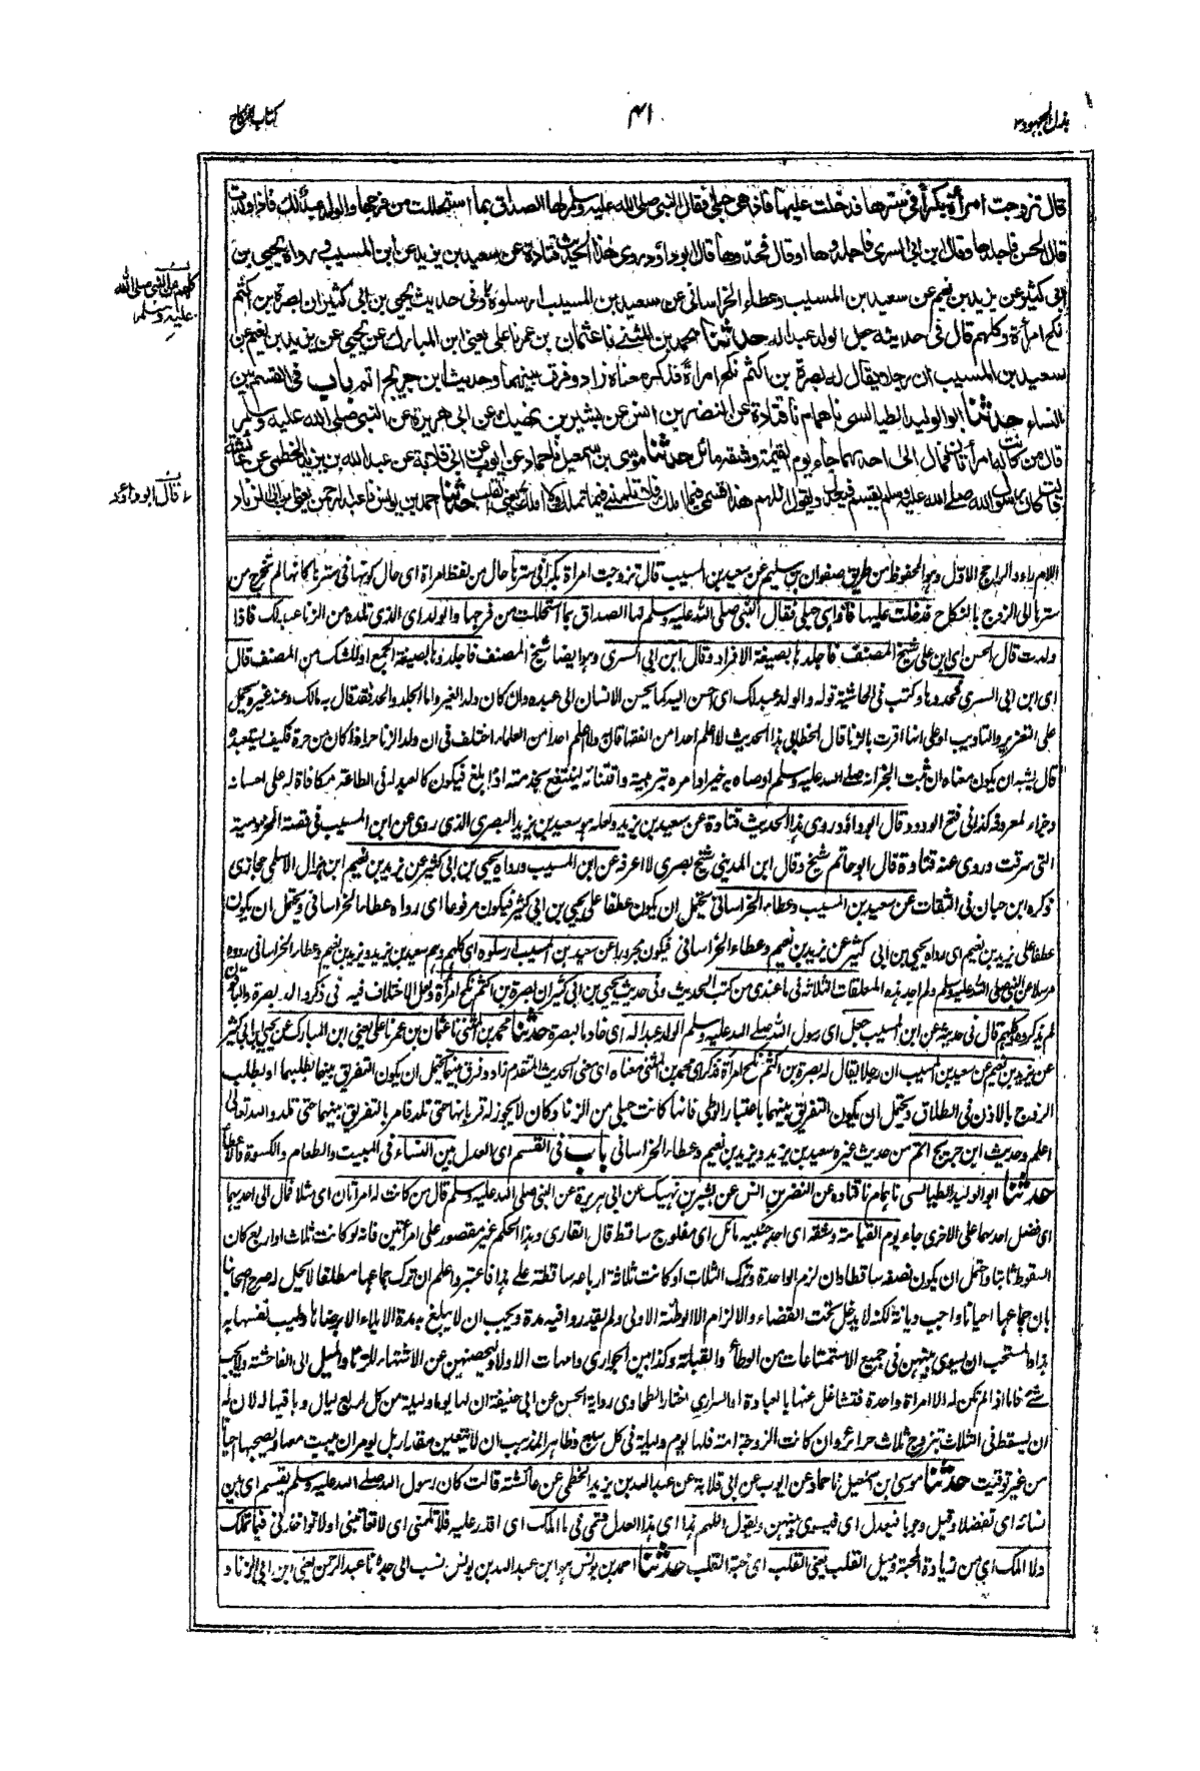 بذل المجهود ٣
٤١
كتاب النكاح
قال تزوجت امرأة بكرا في سترها فدخلت عليها فاذا هي حبلى فقال النبي صلى الله عليه وسلم لها الصداق بما استحللت من فرجها والولد عبد لك فاذا ولدت
قال الحسن فاجلدها وقال ابن ابي السري فاجلدوها او قال فحدوها قال ابو داؤد روى هذا الحديث قتادة عن سعيد بن يزيد عن ابن المسيب ورواه يحيى بن
ابي كثير عن يزيد بن نعيم عن سعيد بن المسيب وعطاء الخراساني عن سعيد بن المسيب ارسلوه وفي حديث يحيى بن ابي كثير ان بصرة بن اكثم
نكح امرأة وكلهم قال في حديثه جعل الولد عبدا له حدثنا محمد بن المثنى نا عثمان بن عمر نا علي يعني ابن المبارك عن يحيى عن يزيد بن نعيم عن
سعيد بن المسيب ان رجلا يقال له بصرة بن اكثم نكح امرأة فذكر معناه زاد وفرق بينهما وحديث ابن جريج اتم باب في القسم بين
النساء حدثنا ابو الوليد الطيالسي نا همام نا قتادة عن النضر بن انس عن بشير بن نهيك عن ابي هريرة عن النبي صلى الله عليه وسلم
قال من كانت له امرأتان فمال الى احدهما جاء يوم القيمة وشقه مائل حدثنا موسى بن اسمعيل نا حماد عن ايوب عن ابي قلابة عن عبد الله بن يزيد الخطمي عن عائشة
قالت كان رسول الله صلى الله عليه وسلم يقسم فيعدل ويقول اللهم هذا قسمي فيما املك فلا تلمني فيما تملك ولا املك يعني القلب حدثنا احمد بن يونس نا عبد الرحمن يعني ابن ابي الزناد
كلهم عن النبي صلى الله
عليه وسلم
قال ابو داود
وهو المحفوظ من طريق صفوان بن سليم عن سعيد بن المسيب قال تزوجت امرأة بكرا في سترها حال من لفظ امرأة اى حال كونها في سترها كانها لم تخرج من
سترها الى الزوج بالنكاح فدخلت عليها فاذا هى حبلى فقال النبي صلى الله عليه وسلم لها الصداق بما استحللت من فرجها والولد اى الذي تلده من الزنا عبد لك فاذا
ولدت قال الحسن اى ابن علي شيخ المصنف فاجلدها بصيغة الافراد وقال ابن ابي السرى وهو ايضا شيخ المصنف فاجلدوها بصيغة الجمع او للشك من المصنف قال
اى ابن ابي السرى فحدوها وكتب في الحاشية قوله والولد عبد لك اى احسن اليه كما يحسن الانسان الى عبده وان كان ولد الغير واما الجلد والحد فقد قال به مالك وعند غيره يحمل
على التعزير والتاديب او على انها اقرت بالزنا قال الخطابي هذا الحديث لا اعلم احدا من الفقهاء قال به ولا اعلم احدا من العلماء اختلف في ان ولد الزنا حر اذا كان من حرة فكيف يستعبده
قال يشبه ان يكون معناه ان ثبت الخبر انه صلى الله عليه وسلم اوصاه به خيرا وامره بتربيته واقتنائه لينتفع بخدمته اذا بلغ فيكون كالعبد له في الطاعة مكافاة له على احسانه
وجزاء لمعروفه كذا في فتح الودود قال ابو داؤد روى هذا الحديث قتادة عن سعيد بن يزيد ولعله هو سعيد بن يزيد البصري الذي روى عن ابن المسيب في قصة المخزومية
التي سرقت وروى عنه قتادة قال ابو حاتم شيخ وقال ابن المديني شيخ بصري لا اعرفه عن ابن المسيب ورواه يحيى بن ابي كثير عن يزيد بن نعيم ابن هزال الاسلمي حجازى
ذكره ابن حبان في الثقات عن سعيد بن المسيب وعطاء الخراساني يحتمل ان يكون عطفا على يحيى بن ابي كثير فيكون مرفوعا اى رواه عطاء الخراساني ويحتمل ان يكون
عطفا على يزيد بن نعيم اى رواه يحيى بن ابي كثير عن يزيد بن نعيم وعطاء الخراساني فيكون مجرورا عن سعيد بن المسيب ارسلوه اى كلهم وهم سعيد بن يزيد ويزيد بن نعيم وعطاء الخراساني رووه
مرسلا عن النبي صلى الله عليه وسلم ولم اجد هذه المعلقات الثلاثة في ما عندى من كتب الحديث وفي حديث يحيى بن ابي كثير ان بصرة بن اكثم نكح امرأة ولعل الاختلاف فيه في ذكر والد بصرة
لم يذكروه وكلهم قال في حديثه عن ابن المسيب جعل اى رسول الله صلى الله عليه وسلم الولد عبدا له اى خادما لبصرة حدثنا محمد بن المثنى نا عثمان بن عمر نا علي يعني ابن المبارك عن يحيى بن ابي كثير
عن يزيد بن نعيم عن سعيد بن المسيب ان رجلا يقال له بصرة بن اكثم نكح امرأة فذكر اى محمد بن المثنى معناه اى معنى الحديث المتقدم زاد وفرق بينهما يحتمل ان يكون التفريق بينهما بطلبهما او بطلب
الزوج بالاذن في الطلاق ويحتمل ان يكون التفريق بينهما باعتبار الوطى فانها كانت حبلى من الزنا وكان لا يجوز له قربانها حتى تلد فامر بالتفريق بينهما حتى تلد والله تعالى
اعلم وحديث ابن جريج اتم من حديث غيره سعيد بن يزيد ويزيد بن نعيم وعطاء الخراساني باب في القسم اى العدل بين النساء في المبيت والطعام والكسوة
حدثنا ابو الوليد الطيالسي نا همام نا قتادة عن النضر بن انس عن بشير بن نهيك عن ابي هريرة عن النبي صلى الله عليه وسلم قال من كانت له امرأتان اى مثلا فمال الى احديهما
اى فضل احدهما على الاخرى جاء يوم القيامة وشقه اى احد جنبيه مائل اى مفلوج ساقط قال القارى وهذا الحكم غير مقصور على امرأتين فانه لو كانت ثلاث او اربع كان
السقوط ثابتا واحتمل ان يكون نصفه ساقطا وان لزم الواحدة وترك الثلاث او كانت ثلاثة ارباعه ساقطة على هذا فاعتبر واعلم ان ترك جماعها مطلقا لا يحل له صرح اصحابنا
بان جماعها احيانا واجب ديانة لكنه لا يدخل تحت القضاء والالزام الا الوطئة الاولى ولم يقدروا فيه مدة ويجب ان لا يبلغ به مدة الايلاء الا برضاها وطيب نفسها به
هذا والمستحب ان يسوى بينهن في جميع الاستمتاعات من الوطأ والقبلة وكذا بين الجوارى وامهات الاولاد ليحصنهن عن الاشتهاء للزنا والميل الى الفاحشة ولا يجب
شئ فاما اذا لم تكن له الا امرأة واحدة فتشاغل عنها بالعبادة او السرارى اختار الطحاوى رواية الحسن عن ابي حنيفة ان لها يوما وليلة من كل اربع ليال وباقيها له لان له
ان يسقط في الثلاث بتزوج ثلاث حرائر وان كانت الزوجة امة فلها يوم وليلة في كل سبع وظاهر المذهب ان لا يتعين مقدار بل يومر ان يبيت معها ويصحبها احيانا
من غير توقيت حدثنا موسى بن اسمعيل نا حماد عن ايوب عن ابي قلابة عن عبد الله بن يزيد الخطمي عن عائشة قالت كان رسول الله صلى الله عليه وسلم يقسم اى بين
نسائه اى تفضلا وقيل وجوبا فيعدل اى فيسوى بينهن ويقول اللهم هذا اى هذا العدل قسمي في ما املك اى اقدر عليه فلا تلمني اى لا تعاتبني او لا تواخذني فيما تملك
ولا املك اى من زيادة المحبة وميل القلب يعني القلب اى محبة القلب حدثنا احمد بن يونس هو ابن عبد الله بن يونس نسب الى جده نا عبد الرحمن يعني ابن ابي الزناد